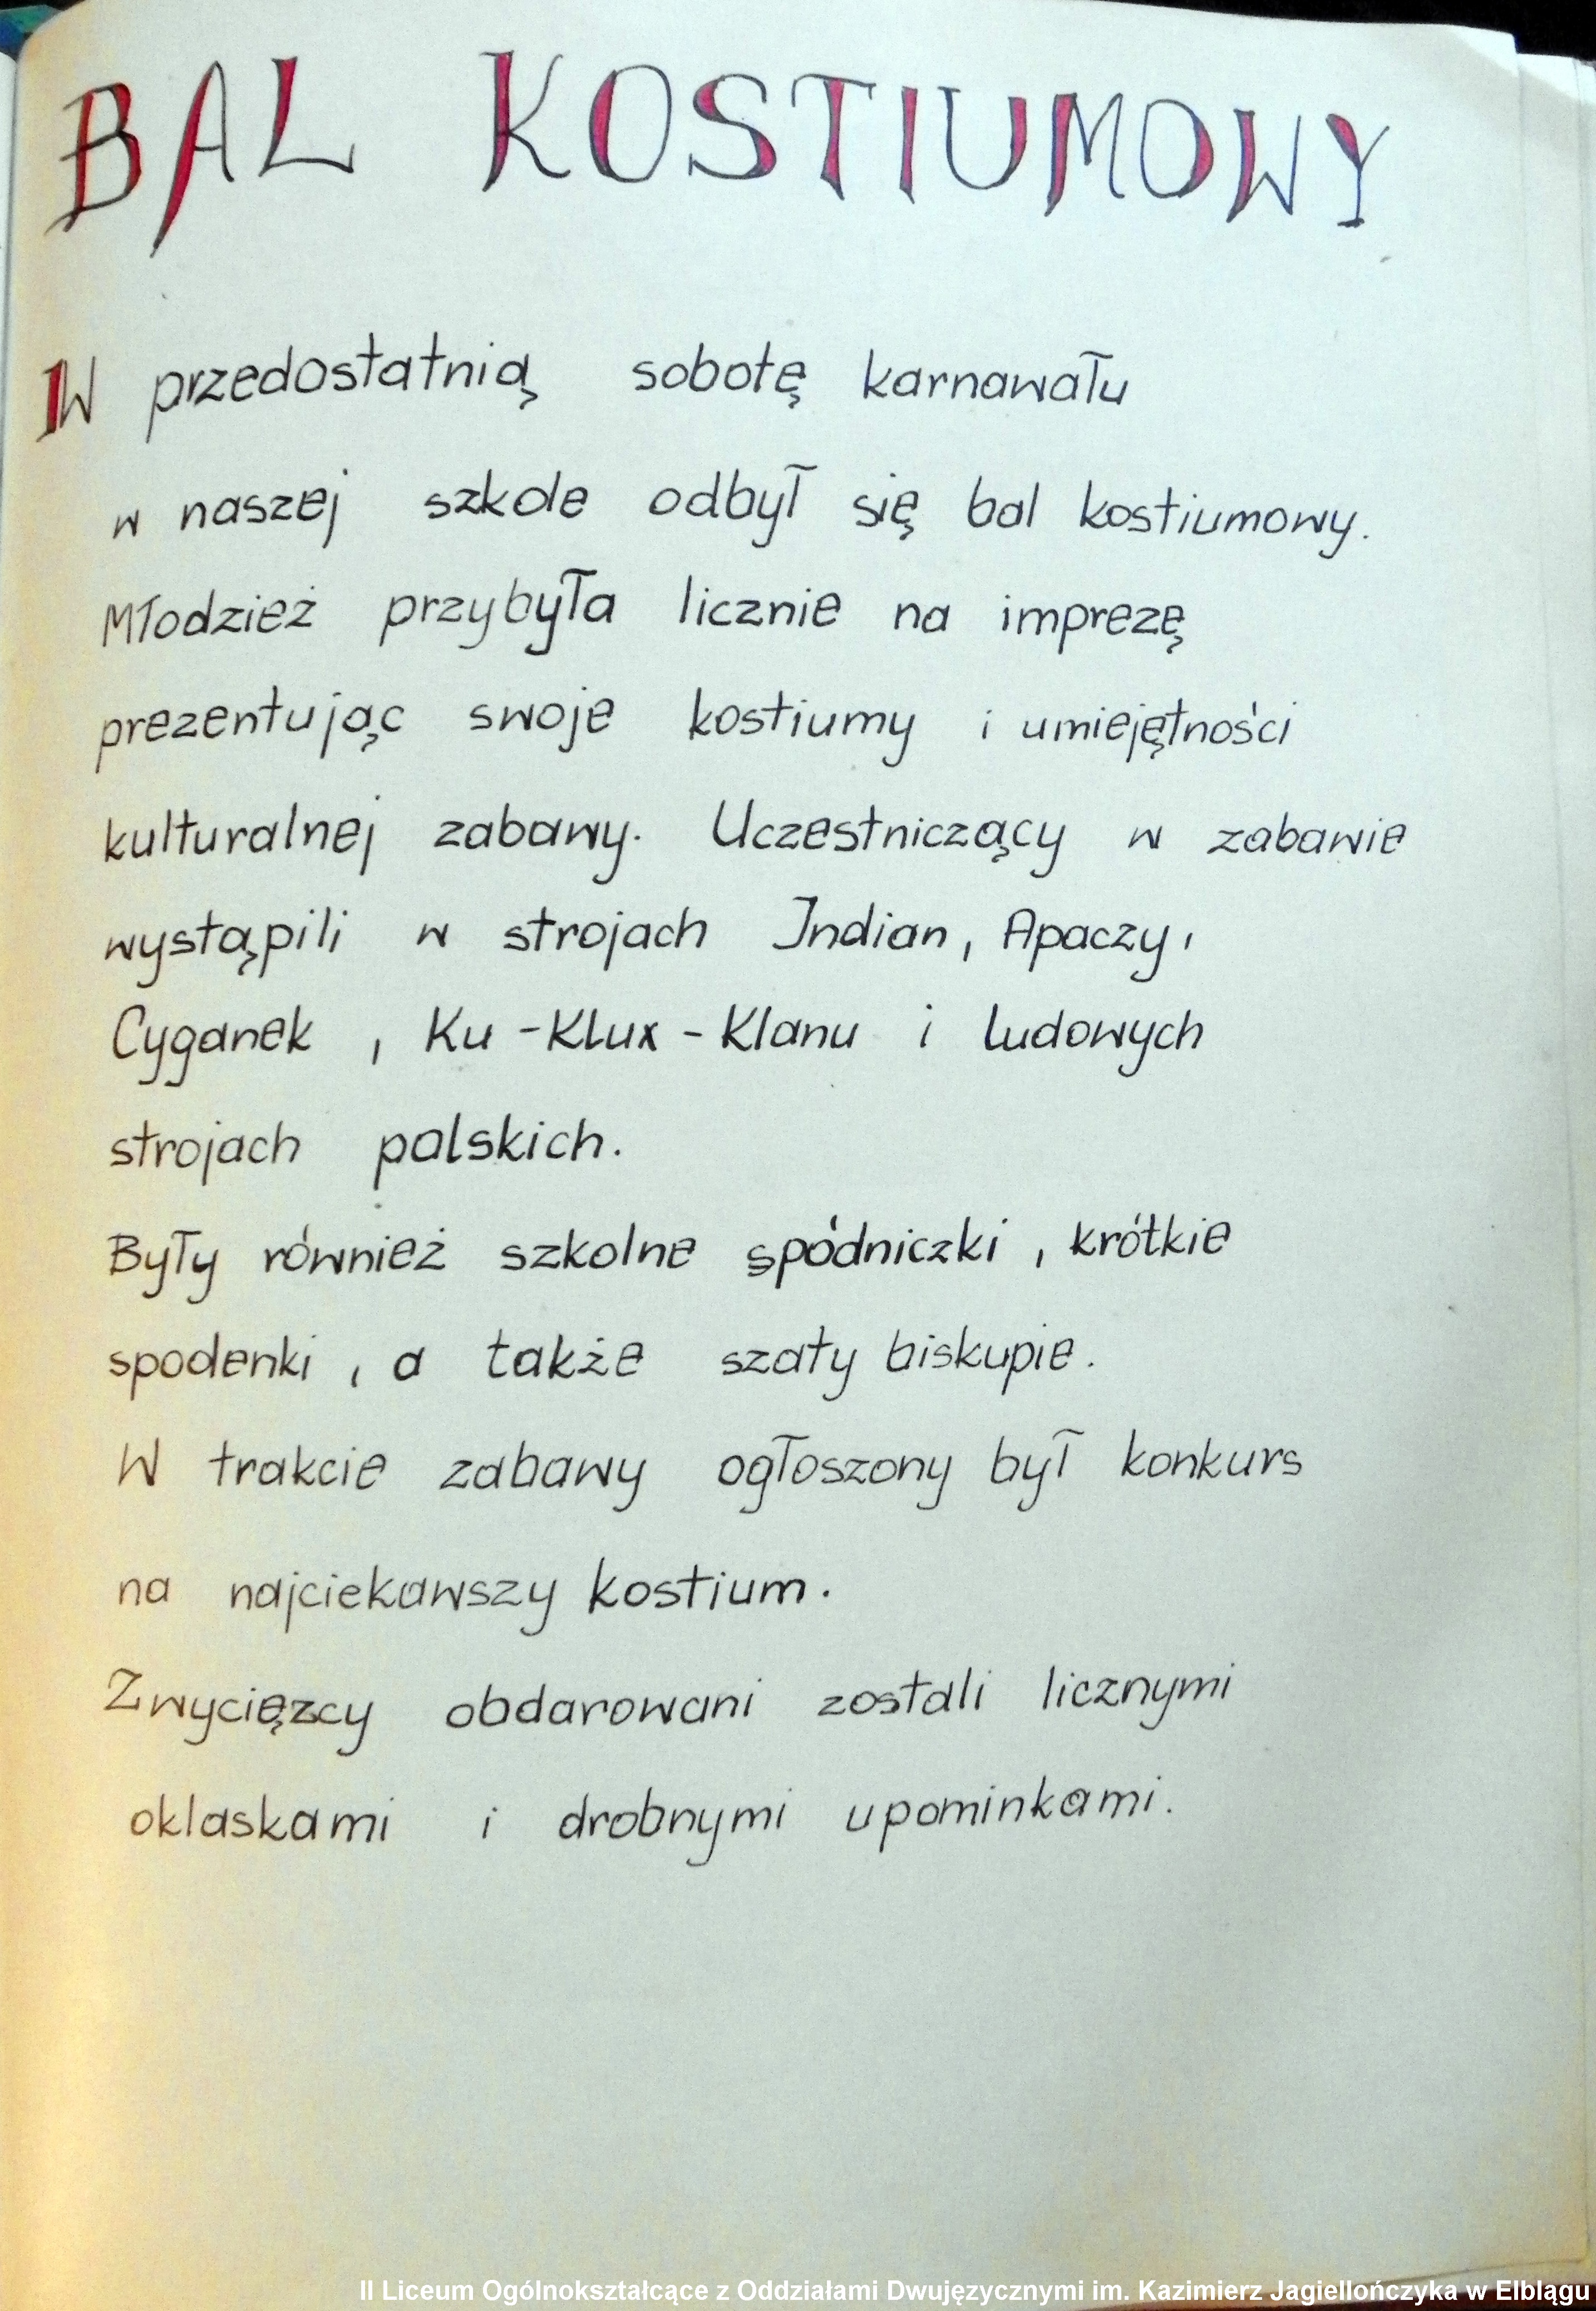 BAL KOSTIUMOWY
W przedostatnią sobotę karnawału
w naszej szkole odbył się bal kostiumowy.
Młodzież przybyła licznie na imprezę
prezentując swoje kostiumy i umiejętności
kulturalnej zabawy. Uczestniczący w zabawie
wystąpili w strojach Indian, Apaczy,
Cyganek, Ku-Klux-Klanu i ludowych
strojach polskich.
Były również szkolne spódniczki, krótkie
spodenki, a także szaty biskupie.
W trakcie zabawy ogłoszony był konkurs
na najciekawszy kostium.
Zwycięzcy obdarowani zostali licznymi
oklaskami i drobnymi upominkami.
II Liceum Ogólnokształcące z Oddziałami Dwujęzycznymi im. Kazimierz Jagiellończyka w Elblągu